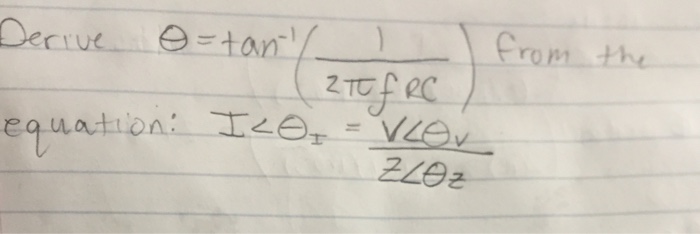 Derive θ = tan⁻¹(1/(2πfRC)) from the
equation: I<θ_I = V∠θ_v / Z∠θ_z